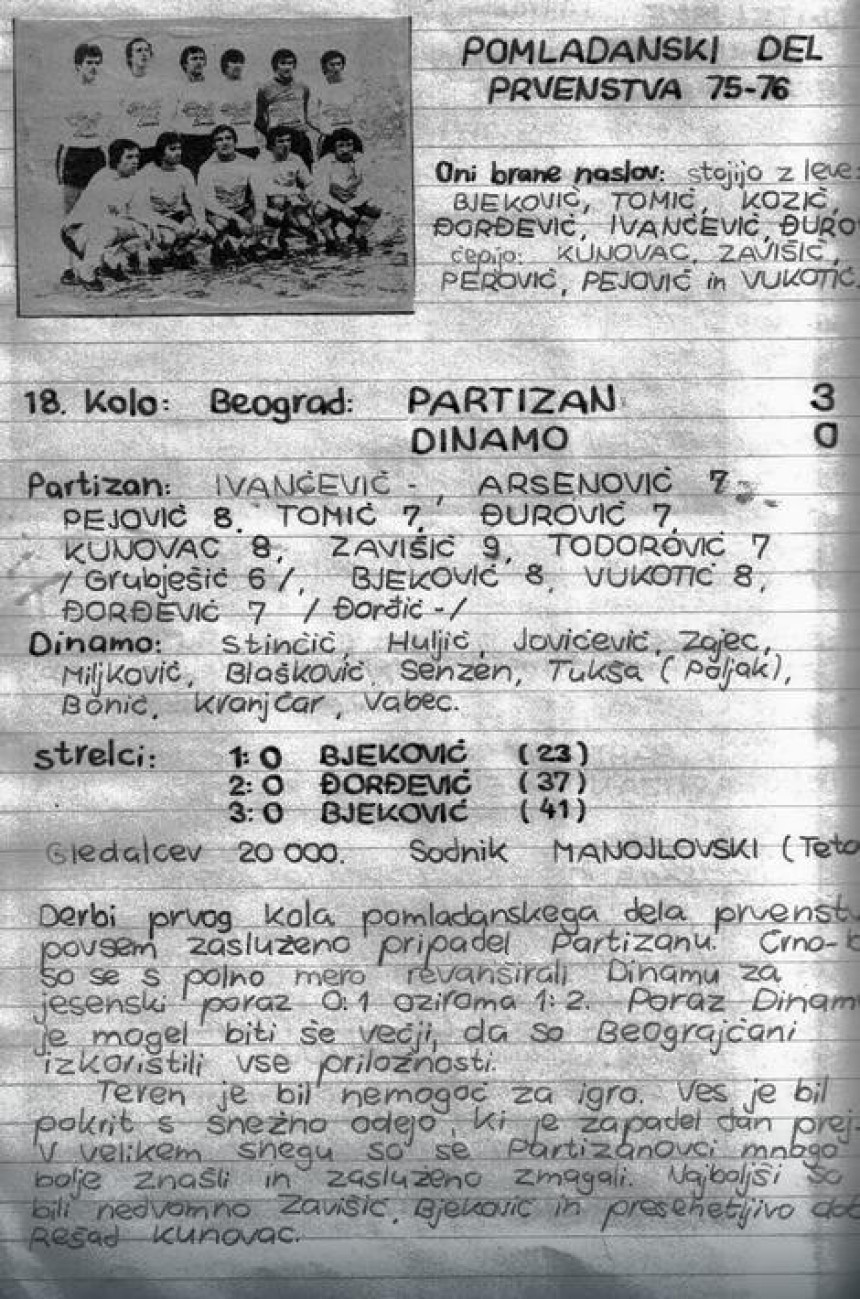 POMLADANSKI DEL
PRVENSTVA 75-76
Oni brane naslov: stojijo z leve:
BJEKOVIĆ, TOMIĆ, KOZIĆ,
ĐORĐEVIĆ, IVANČEVIĆ, ĐURO
čepijo: KUNOVAC, ZAVIŠIĆ,
PEROVIĆ, PEJOVIĆ in VUKOTIĆ.
18. Kolo: Beograd: PARTIZAN 3
DINAMO 0
Partizan: IVANČEVIĆ -, ARSENOVIĆ 7,
PEJOVIĆ 8, TOMIĆ 7, ĐUROVIĆ 7,
KUNOVAC 8, ZAVIŠIĆ 9, TODOROVIĆ 7
/Grubješić 6/, BJEKOVIĆ 8, VUKOTIĆ 8,
ĐORĐEVIĆ 7 /Đorđić -/
Dinamo: Stinčić, Huljić, Jovićević, Zajec,
Miljković, Blašković, Senzen, Tukša (Poljak),
Bonić, Kranjčar, Vabec.
strelci: 1:0 BJEKOVIĆ (23)
2:0 ĐORĐEVIĆ (37)
3:0 BJEKOVIĆ (41)
Gledalcev 20 000. Sodnik MANOJLOVSKI (Teto
Derbi prvog kola pomladanskega dela prvenstv
povsem zasluženo pripadel Partizanu. Črno-b
so se s polno mero revanširali Dinamu za
jesenski poraz 0:1 oziroma 1:2. Poraz Dinam
je mogel biti še večji, da so Beograjčani
izkoristili vse priložnosti.
Teren je bil nemogoč za igro. Ves je bil
pokrit s snežno odejo, ki je zapadel dan prej.
V velikem snegu so se Partizanovci mnogo
bolje znašli in zasluženo zmagali. Najboljši so
bili nedvomno Zavišić, Bjeković in presenetljivo dob
Rešad Kunovac.